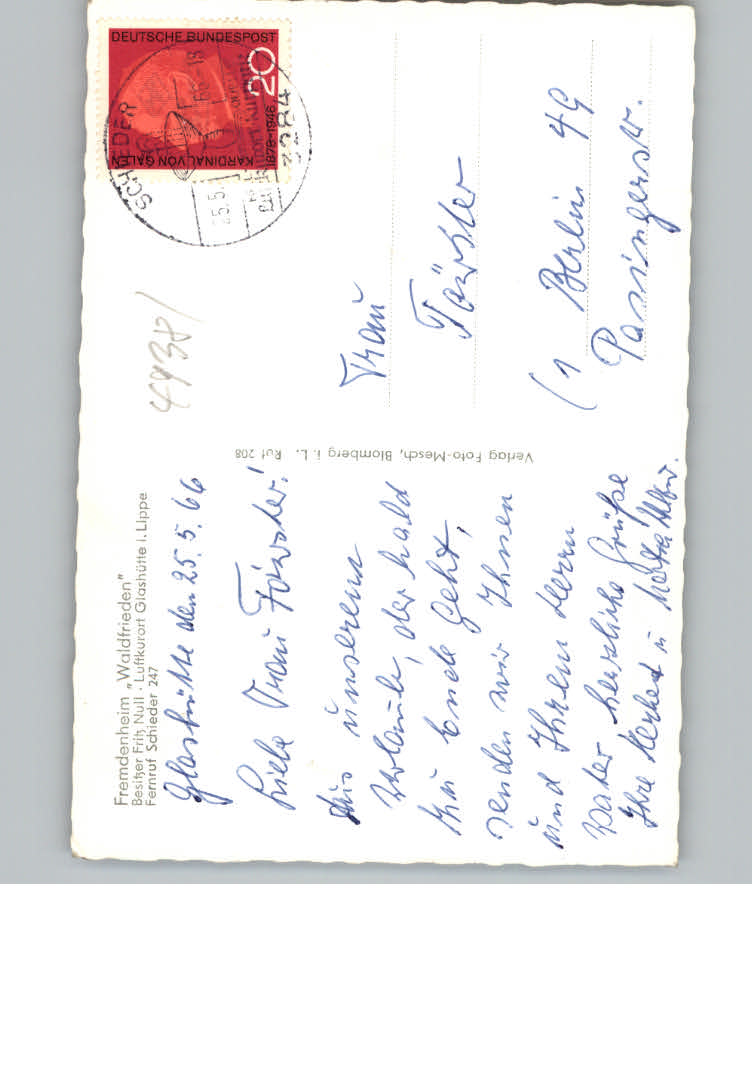 Fremdenheim „Waldfrieden"
Besitzer Fritz Null · Luftkurort Glashütte i. Lippe
Fernruf Schieder 247
Glashütte den 25.5.66
Liebe Frau Förster!
Aus unserem
Urlaub, der bald
zu Ende geht,
senden wir Ihnen
und Ihrem Herrn
Vater herzliche Grüße
Ihre Herbert u.
Verlag Foto-Mesch, Blomberg i. L. Ruf 208
4938/
DEUTSCHE BUNDESPOST
20
KARDINAL VON GALEN
1878-1946
SCHIEDER
25.5.
3284
Frau
Förster
(1 Berlin 49
Passingerstr.